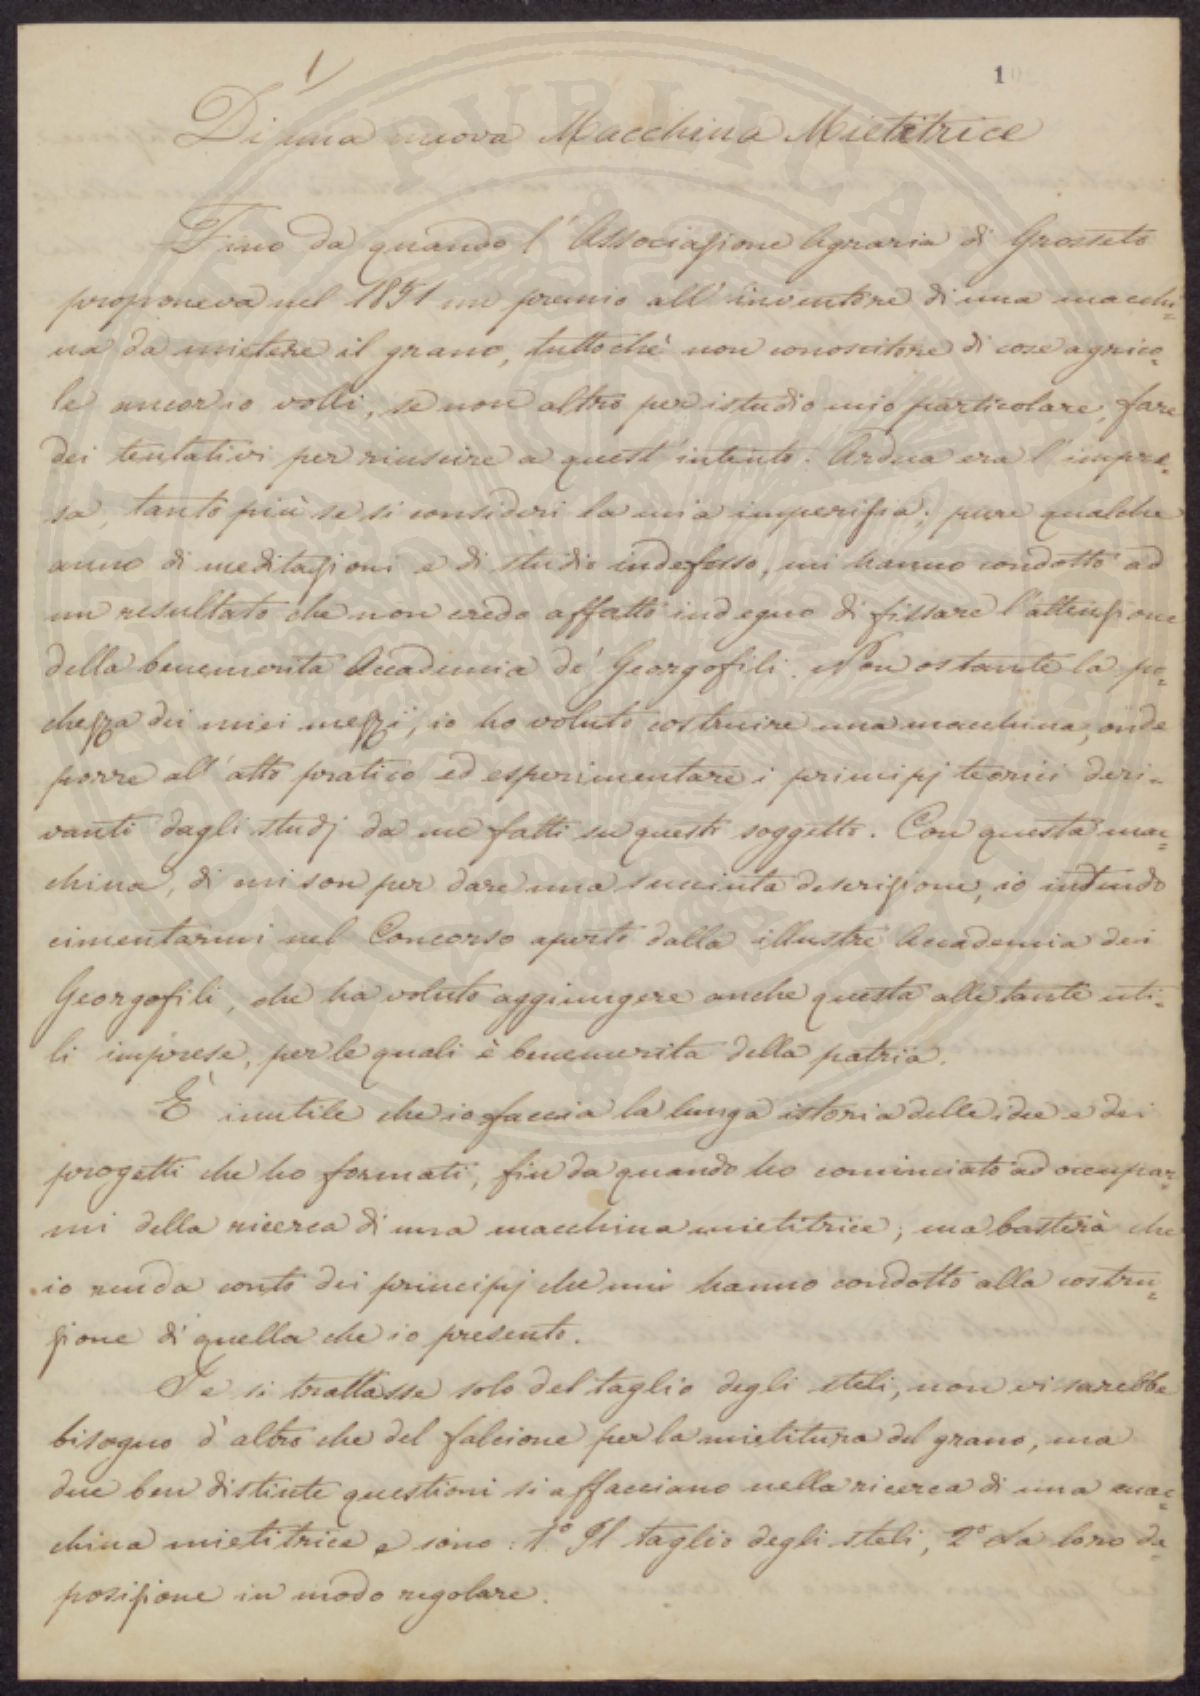 1
1
Di una nuova Macchina Mietitrice
Fino da quando l'Associazione Agraria di Grosseto
proponeva nel 1851 un premio all'inventore di una macchi=
na da mietere il grano, tuttochè non conoscitore di cose agrico=
le ancor io volli, se non altro per istudio mio particolare, fare
dei tentativi per riuscire a quest'intento. Ardua era l'impre=
sa, tanto più se si consideri la mia imperizia; pure qualche
anno di meditazioni e di studio indefesso, mi hanno condotto ad
un resultato che non credo affatto indegno di fissare l'attenzione
della benemerita Accademia de' Georgofili. Non ostante la po=
chezza dei miei mezzi, io ho voluto costruire una macchina, onde
porre all'atto pratico ed esperimentare i principj teorici deri=
vanti dagli studj da me fatti su questo soggetto. Con questa mac=
china, di mi son per dare una succinta descrizione, io intendo
cimentarmi nel Concorso aperto dalla illustre Accademia dei
Georgofili, che ha voluto aggiungere anche questa alle tante uti=
li imprese, per le quali è benemerita della patria.
È inutile che io faccia la lunga istoria delle idee e dei
progetti che ho formati, fin da quando ho cominciato ad occupar=
mi della ricerca di una macchina mietitrice; ma basterà che
io renda conto dei principj che mi hanno condotto alla costru=
zione di quella che io presento.
Se si trattasse solo del taglio degli steli, non vi sarebbe
bisogno d'altro che del falcione per la mietitura del grano, ma
due ben distinte questioni si affacciano nella ricerca di una mac=
china mietitrice e sono: 1º Il taglio degli steli, 2º La loro de=
posizione in modo regolare.